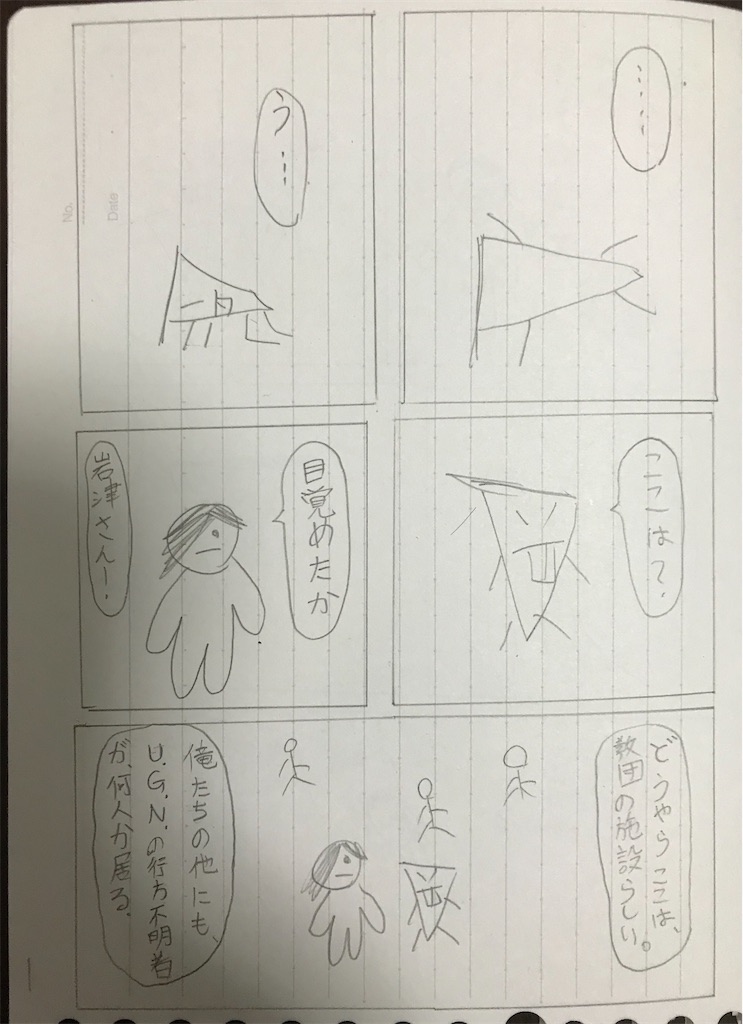 ……
う…
ここは?
目覚めたか
岩津さんー!
どうやらここは、
教団の施設らしい。
俺たちの他にも、
U.G.N.の行方不明者
が、何人か居る。
No.
Date